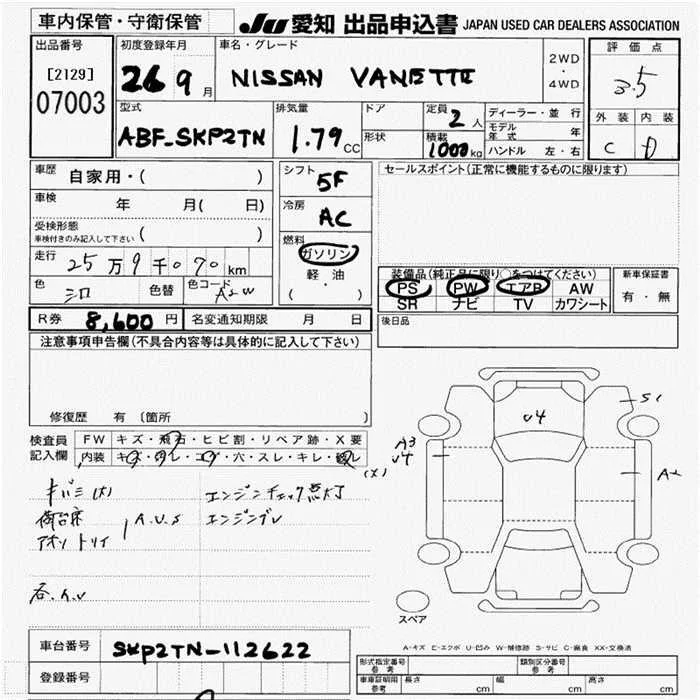 車内保管・守衛保管
JU 愛知 出品申込書 JAPAN USED CAR DEALERS ASSOCIATION
出品番号
[2129]
07003
初度登録年月
26 9月
車名・グレード
NISSAN VANETTE
2WD
・
4WD
評価点
3.5
外装 内装
C D
型式
ABF-SKP2TN
排気量
1.79 CC
ドア
形状
定員 2人
積載 1000kg
ディーラー・並行
モデル年式 年
ハンドル 左・右
車歴 自家用・( )
車検 年 月( 日)
受検形態
車検付きのみ記入して下さい ( )
走行 25万9千070km
色 シロ 色替 色コード A2W
シフト
5F
冷房
AC
燃料
ガソリン
軽・油
( ・ )
セールスポイント(正常に機能するものに限ります)
装備品(純正品に限り○をつけてください)
PS PW エアB AW
SR ナビ TV カワシート
新車保証書
有・無
R券 8,600円 名変通知期限 月 日
後日品
注意事項申告欄(不具合内容等は具体的に記入して下さい)
修復歴 有 〔箇所 〕
検査員記入欄
FW キズ・飛石・ヒビ割・リペア跡・X要
内装 キズ・汚レ・コゲ・穴・スレ・キレ・破レ
キバミ(大) エンジンチェック点灯
荷台床 A.U.S エンジン
S1
U4
A3
U4
(X)
スペア
A-キズ E-エクボ U-凹み W-補修跡 S-サビ C-腐食 XX-交換済
車台番号 SKP2TN-112622
登録番号
形式指定番号 参考
類別区分番号 参考
車庫証明用 参考 長さ cm 幅 cm 高さ cm